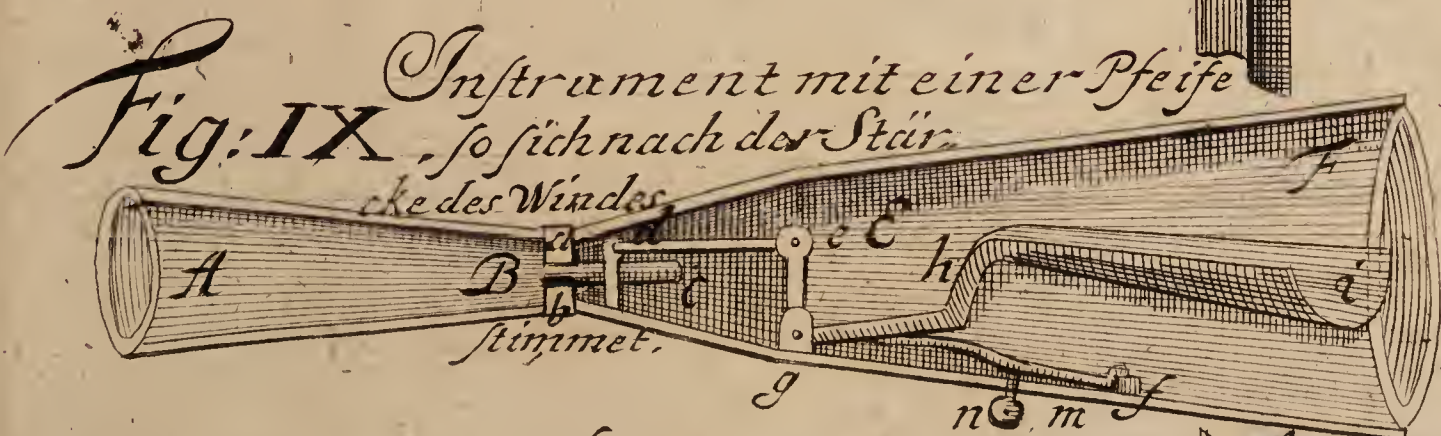 Fig: IX. Inſtrument mit einer Pfeife
ſo ſich nach der Stär,
cke des Windes,
ſtimmet.
A B a b d c e C h F i g n m f